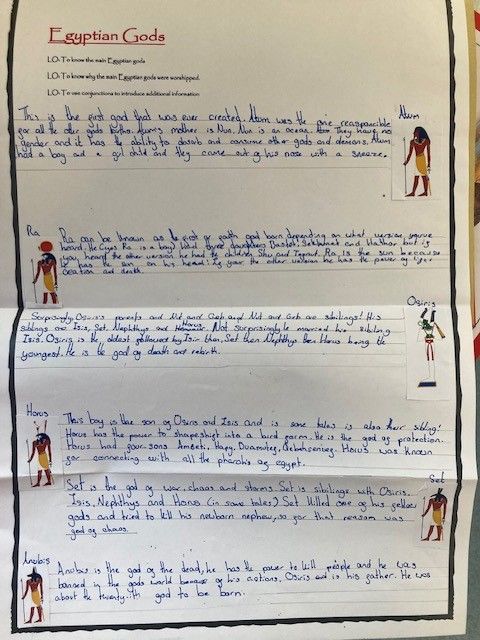 Egyptian Gods
LO- To know the main Egyptian gods
LO- To know why the main Egyptian gods were worshipped.
LO- To use conjunctions to introduce additional information
Atum
This is the first god that was ever created. Atum was the one reasponcible
for all the other gods births. Atum's mother is Nun. Nun is an ocean. They have no
gender and it has the ability to absorb and consume other gods and demons. Atum
had a boy and a girl child and they came out of his nose with a sneeze.
Ra
Ra can be known as the first or god born depending on what version you've
heard. He (yes Ra is a boy) had three daughters Bastet, Sekhmet and Hathor but if
you heard the other version he had the children Shu and Tegnut. Ra is the sun because
he the sun on his head! In your the other version he has the power of
creation and death.
Osiris
Surprisingly Osiris's parents and Nut and Geb and Nut and Geb are sibilings! His
siblings are Isis, Set, Nephthys and Horus. Not surprisingly he married his sibling
Isis. Osiris is the oldest followed by Isis then Set then Nephthys then Horus being the
youngest. He is the god of death and rebirth.
Horus
This boy is the son of Osiris and Isis and in some tales is also their sibling!
Horus has the power to shapeshift into a bird form. He is the god of protection.
Horus had four sons Amset, Hapy, Duamutef, Qebehsenuef. Horus was known
for connecting with all the pharohs of egypt.
Set
Set is the god of war, chaos and storms. Set is sibilings with Osiris,
Isis, Nephthys and Horus (in some tales) Set killed one of his fellow
gods and tried to kill his newborn nephew, so for that reason was
god of chaos
Anubis
Anubis is the god of the dead, he has the power to kill people and he was
banned in the gods world because of his actions. Osiris is his father. He was
about the twenty-th god to be born.